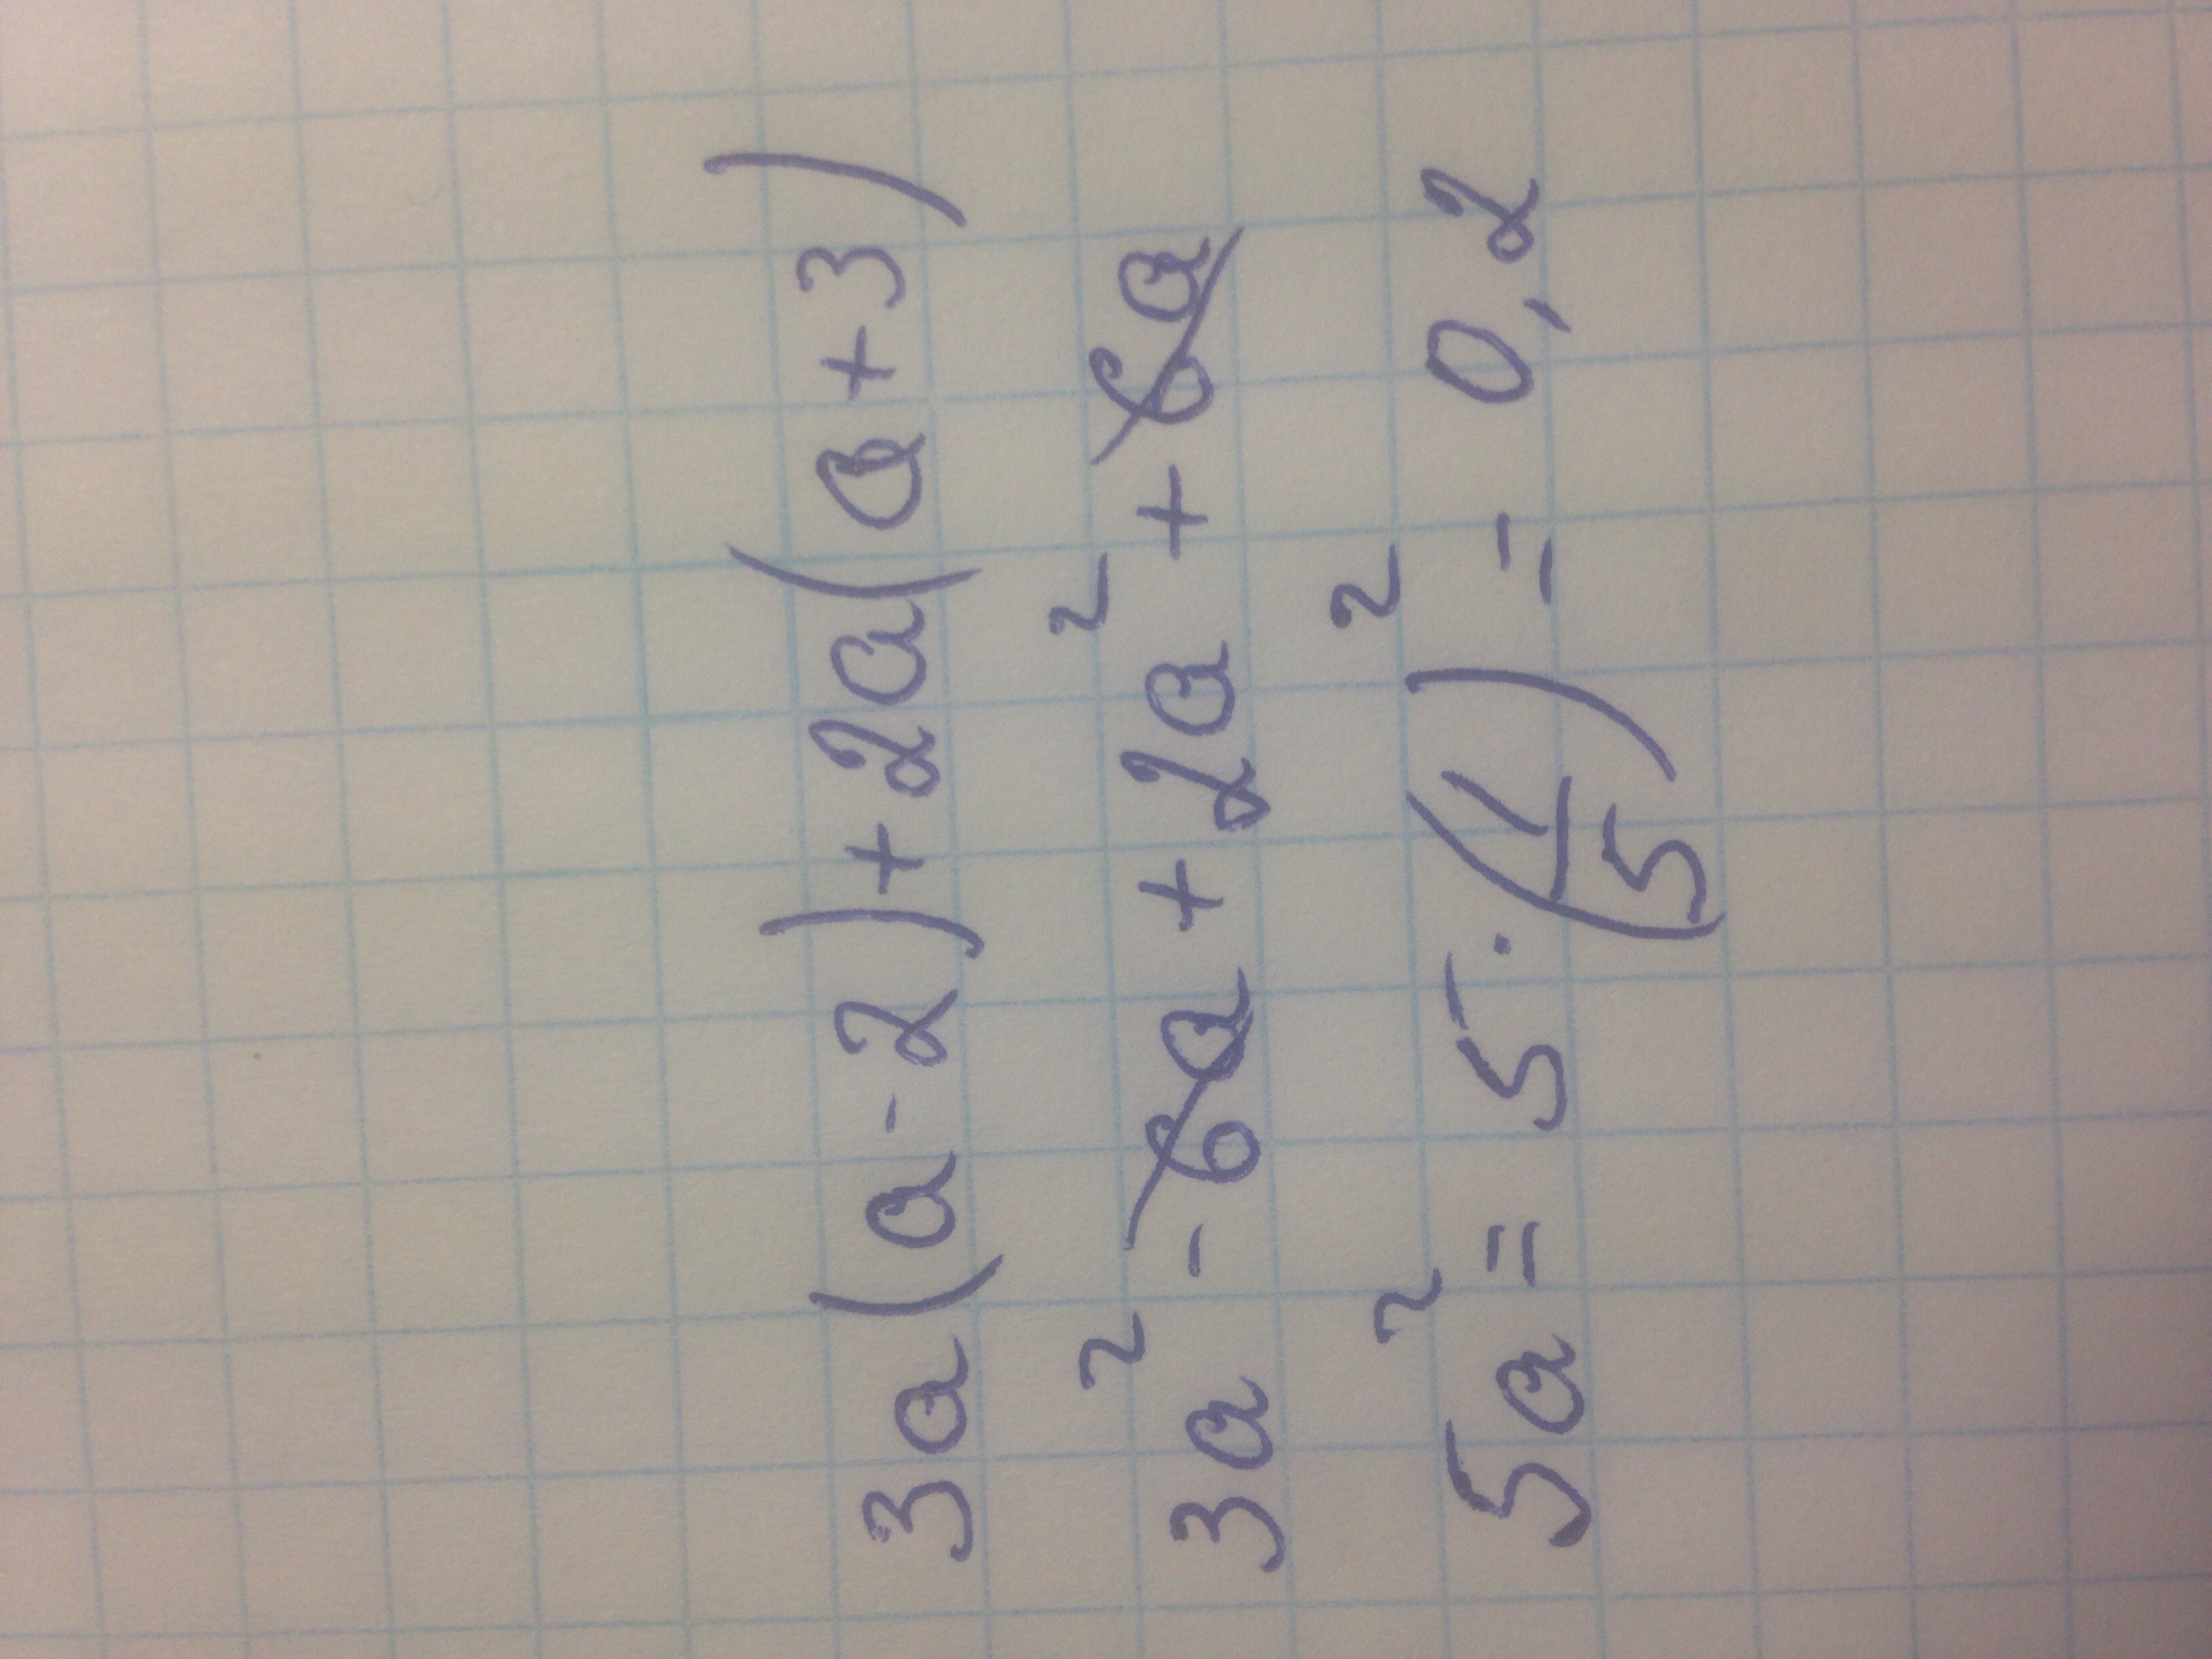 3a(a-2)+2a(a+3)
3a²-6a+2a²+6a
5a²=5·(1/5)²=0,2